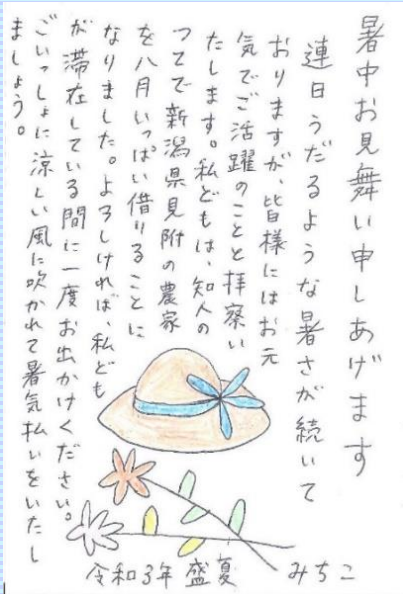 暑中お見舞い申しあげます
連日うだるような暑さが続いて
おりますが、皆様にはお元
気でご活躍のことと拝察い
たします。私どもは、知人の
つてで新潟県見附の農家
を八月いっぱい借りることに
なりました。よろしければ、私ども
が滞在している間に一度お出かけください。
ごいっしょに涼しい風に吹かれて暑気払いをいたし
ましょう。
令和3年 盛夏 みちこ